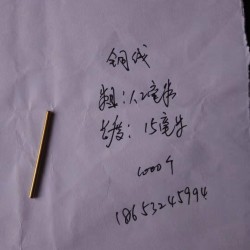 铜线
粗：1.2毫米
长度：15毫米
1000个
18653245994